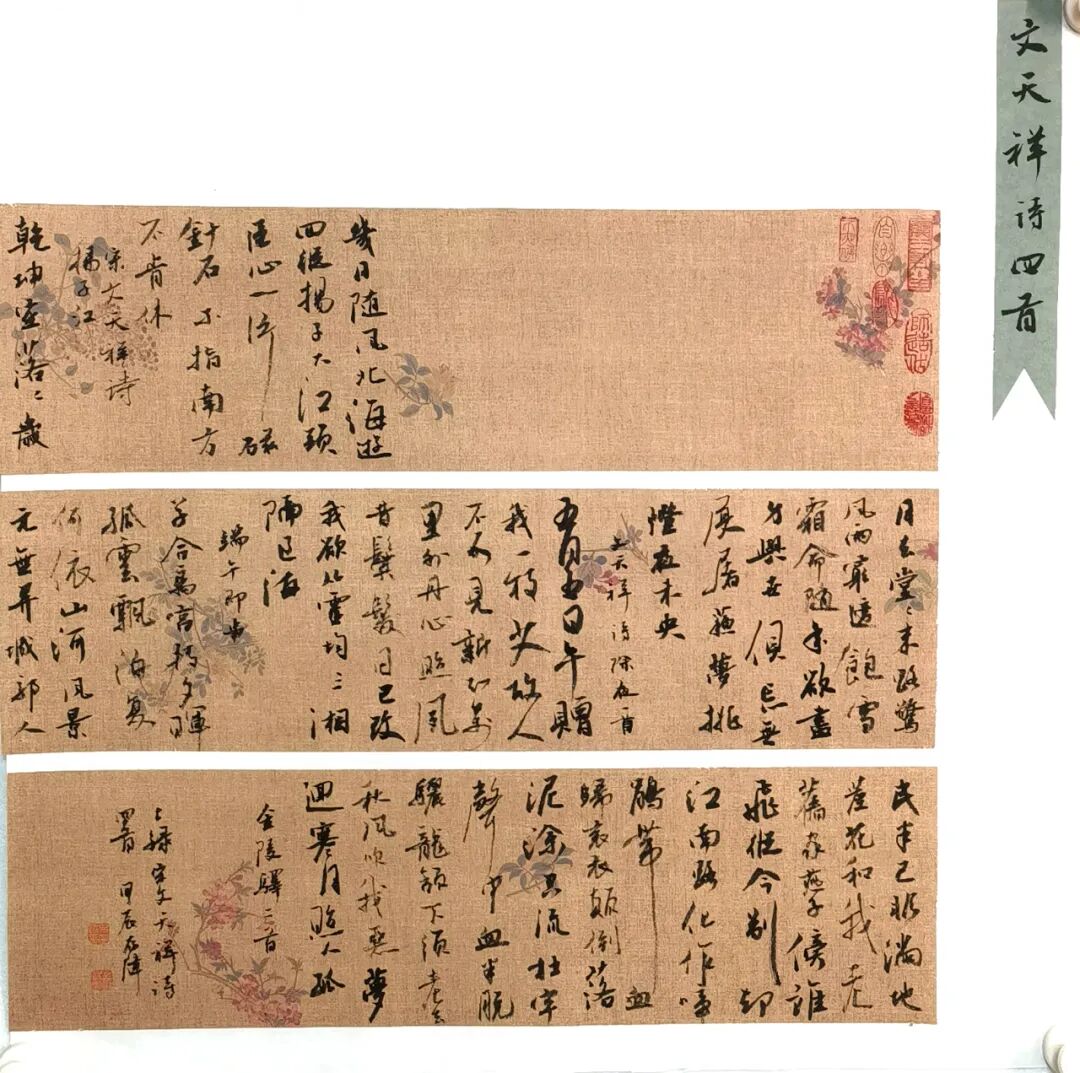 文天祥诗四首
幾日随风北海遊
回從揚子大江頭
臣心一片磁
針石不指南方
不肯休
宋文天祥诗
揚子江
乾坤空落落歲
月去堂堂末路驚
风雨窮邊飽雪
霜命随年欲盡
身與世俱忘無
復屠蘇夢挑
燈夜未央
文天祥诗除夜一首
五月五日午贈
我一枝艾故人
不可見新知萬
里外丹心照夙
昔鬢髮日已改
我欲從靈均三湘
隔遼海
端午即事
草合離宮轉夕暉
孤雲飄泊复
何依山河风景
元無异城郭人
民半已非滿地
蘆花和我老
舊家燕子傍誰
飛從今别却
江南路化作啼
鵑帶血
歸衮衣顛倒落
泥塗空流杜宇
聲中血半脱
驪龍頷下须老去
秋风吹我惡夢
迴寒月照人孤
金陵驛二首
上録宋文天祥诗
四首 甲辰